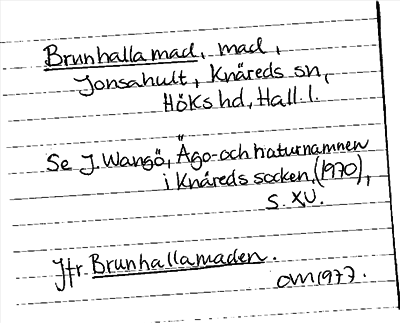 Brunhalla mad, mad,
Jonsahult, Knäreds sn,
Höks hd, Hall. l.
Se J. Wangö, Ägo- och naturnamnen
i Knäreds socken, (1970),
s. XV.
Jfr Brunhallamaden.
OVM 1977.